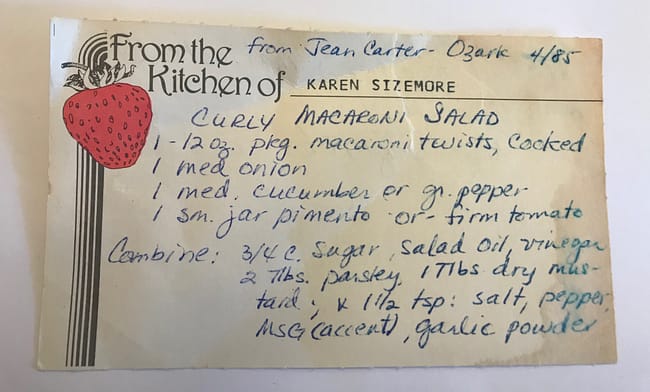 From the from Jean Carter - Ozark 4/85
Kitchen of KAREN SIZEMORE
CURLY MACARONI SALAD
1 - 12 oz. pkg. macaroni twists, cooked
1 med onion
1 med. cucumber or gr. pepper
1 sm. jar pimento -or- firm tomato
Combine: 3/4 c. sugar, salad oil, vinegar
2 Tlbs. parsley, 1 Tlbs dry mus-
tard; & 1 1/2 tsp: salt, pepper,
MSG (accent), garlic powder